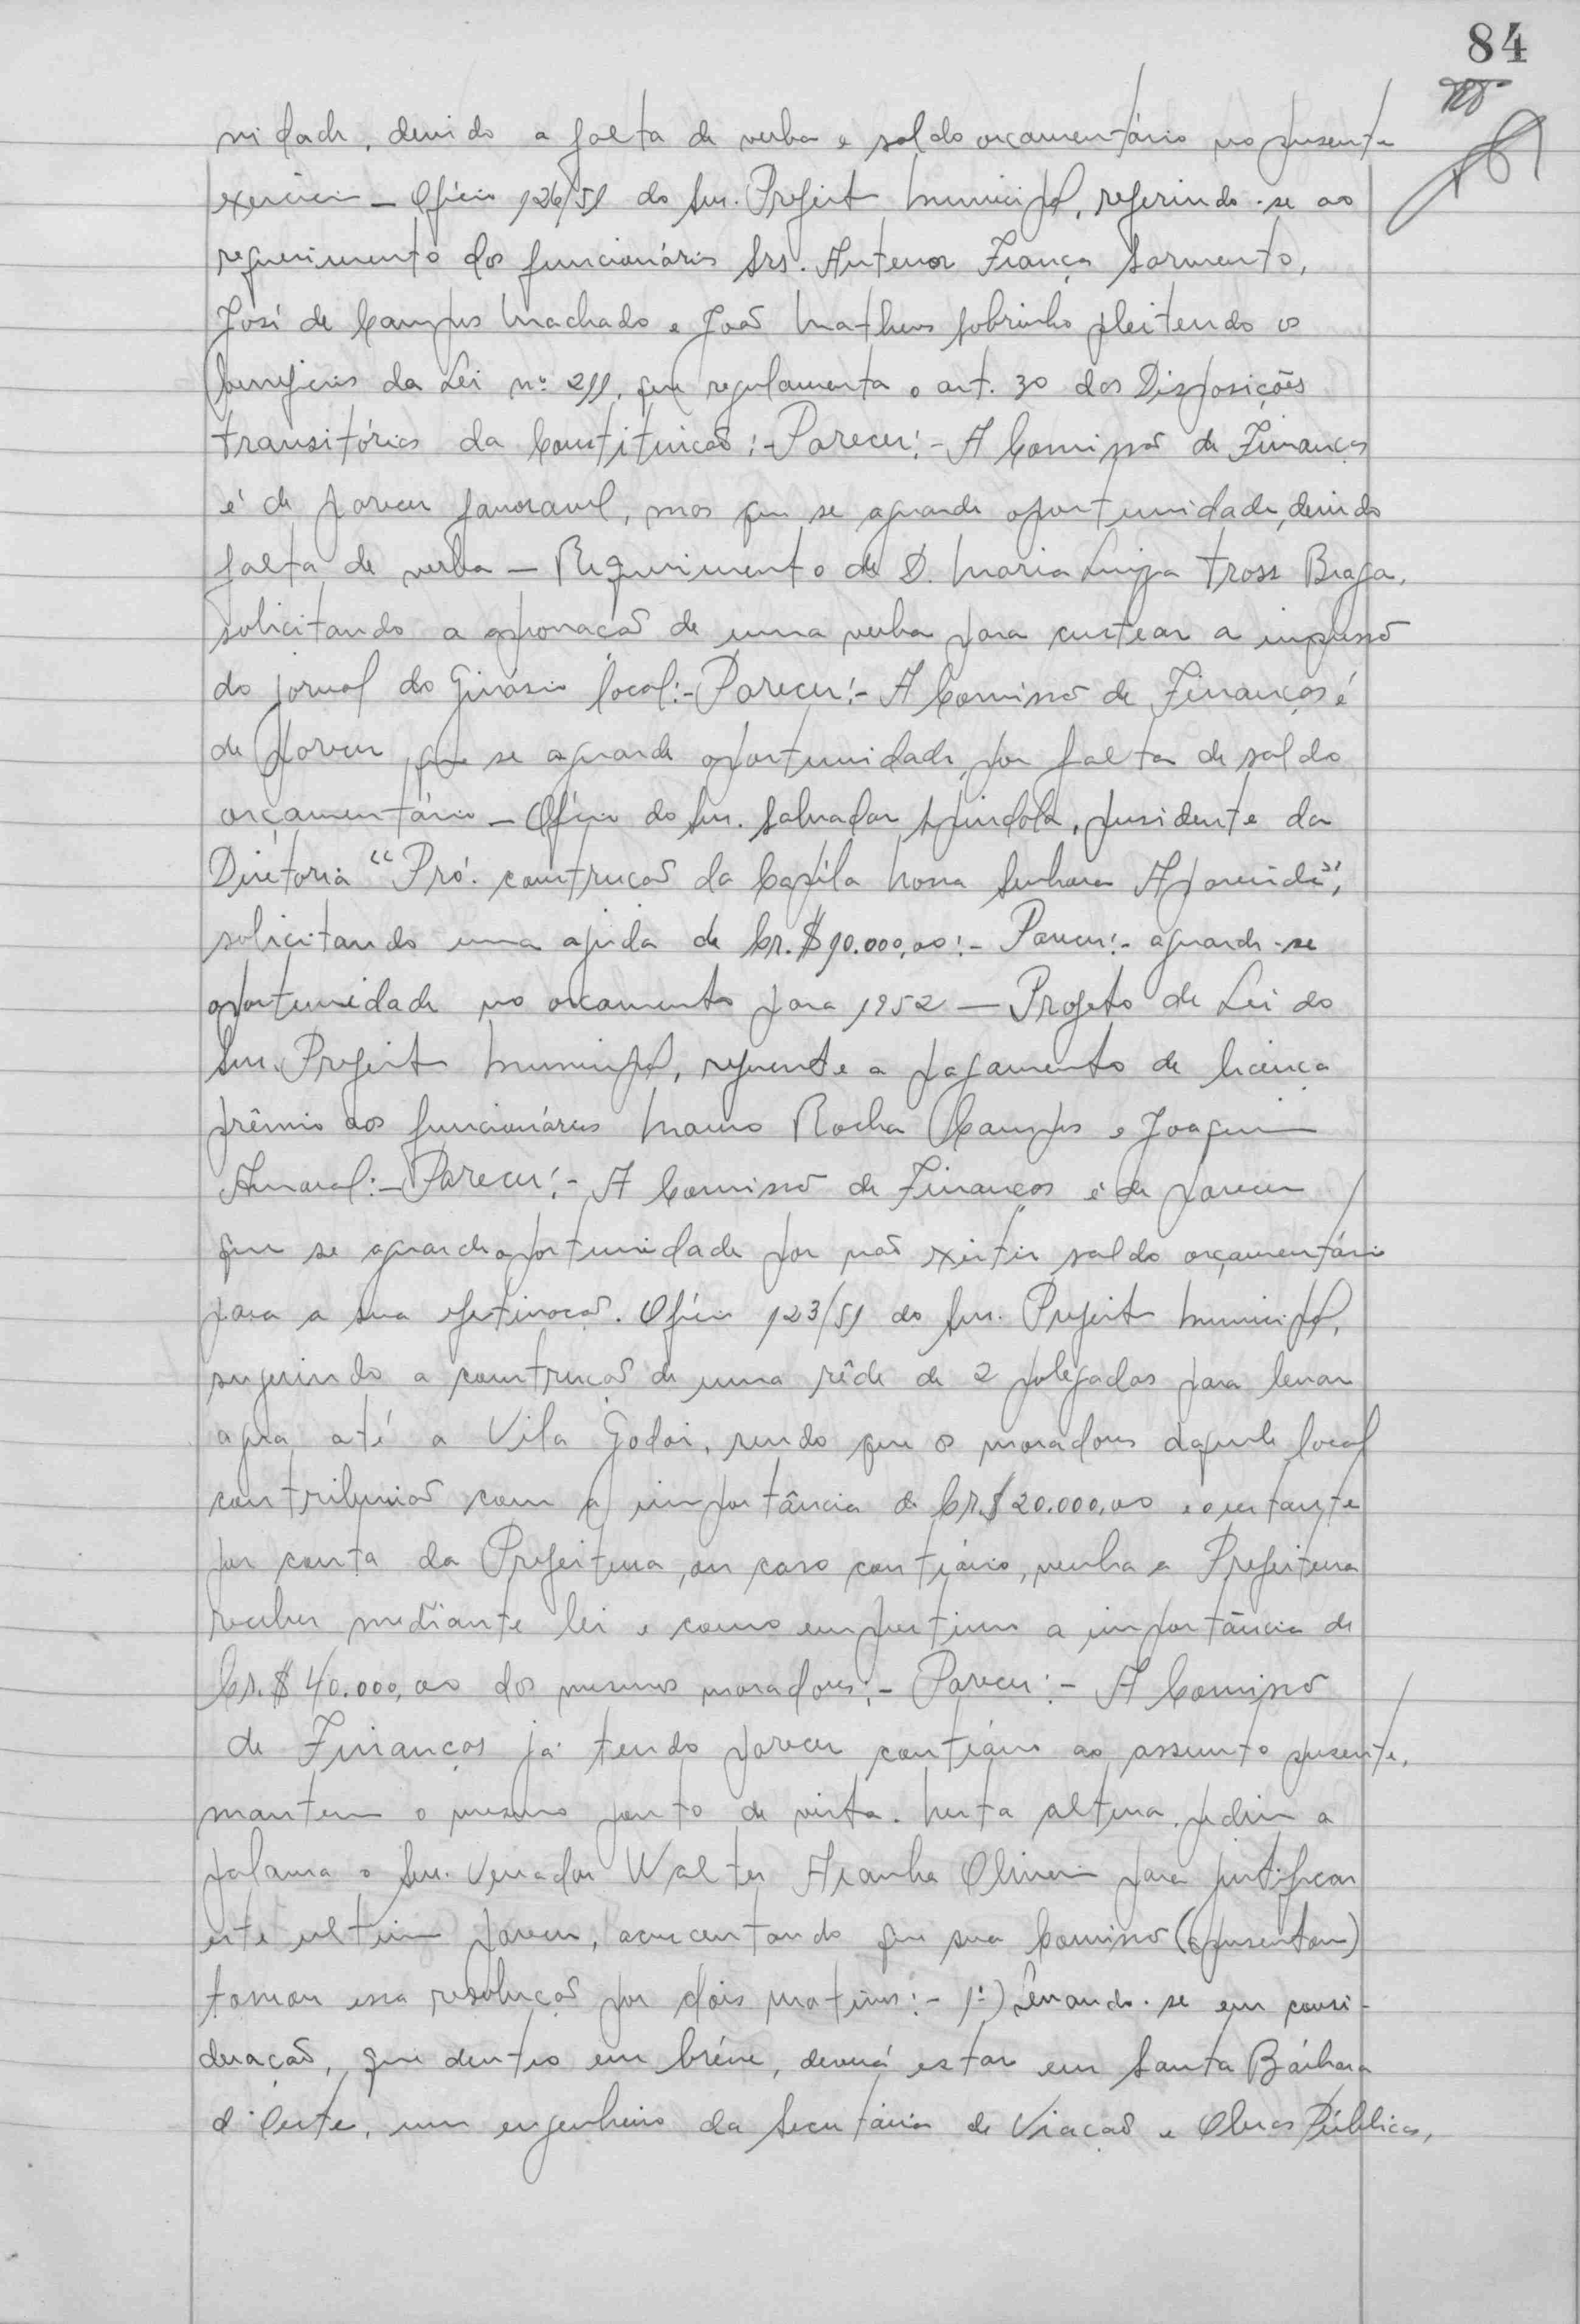 84
nidade, devido a falta de verba e saldo orçamentário no presente
exercício — Ofício 126/51 do Snr. Prefeito Municipal, referindo-se ao
requerimento dos funcionários Srs. Antenor França Sarmento,
José de Campos Machado e João Matheus Sobrinho pleitendo os
beneficios da Lei nº 211, que regulamenta o art. 30 das Disposições
transitórias da Constituicão:- Parecer:- A Comissão de Finanças
é de parecer favoravel, mas que se aguarde oportunidade, devido
falta de verba — Requerimento de D. Maria Luiza Tross Braga,
solicitando a aprovação de uma verba para custear a impressão
do jornal do Ginásio local:- Parecer:- A Comissão de Finanças é
de parecer que se aguarde oportunidade, por falta de saldo
orçamentário — Ofício do Snr. Salvador Spindola, presidente da
Diretoria "Pró-construcão da Capéla Nossa Senhora Aparecida",
solicitando uma ajuda de Cr.$10.000,00:- Parecer:- aguarde-se
oportunidade no orcamento para 1952 — Projeto de Lei do
Snr. Prefeito Municipal, referente a pagamento de licença
prêmio aos funcionários Mauro Rocha Campos e Joaquim
Amaral:- Parecer:- A Comissão de Finanças é de parecer
que se aguarde oportunidade por não existir saldo orçamentário
para a sua efetivacão. Ofício 123/51 do Snr. Prefeito Municipal,
sugerindo a construcão de uma rêde de 2 polegadas para levar
agua até a Vila Godoi, sendo que os moradores daquele local
contribuirão com a importância de Cr.$20.000,00 e o restante
por conta da Prefeitura, ou caso contrário, venha a Prefeitura
receber mediante lei e como emprestimo a importância de
Cr.$40.000,00 dos mesmos moradores:- Parecer:- A Comissão
de Finanças já tendo parecer contrário ao assunto presente,
mantem o mesmo ponto de vista. Nesta altura, pediu a
palavra o Snr. Vereador Walter Aranha Oliveira para justificar
este ultimo parecer, acrescentando que sua Comissão (apresentou)
tomou essa resolucão por dois motivos:- 1º) Levando-se em consi-
deração, que dentro em bréve, deverá estar em Santa Bárbara
d'Oeste, um engenheiro da Secretária de Viacão e Obras Públicas,